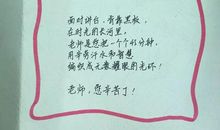 面对讲台,背靠黑板,
在时光的长河里,
老师是您把一个个45分钟,
用辛勤汗水和智慧
编织成无数耀眼的光环!
老师,您辛苦了!